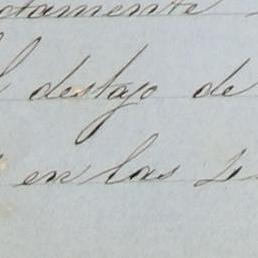 ctamente
l destajo de
en las